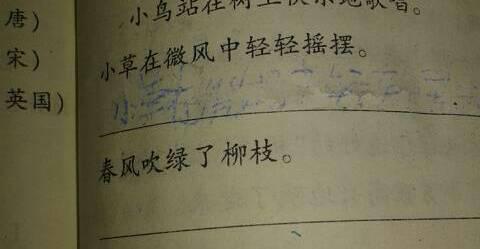 唐)
宋)
英国)
小鸟站在树上快乐地歌唱。
小草在微风中轻轻摇摆。
小草在
春风吹绿了柳枝。